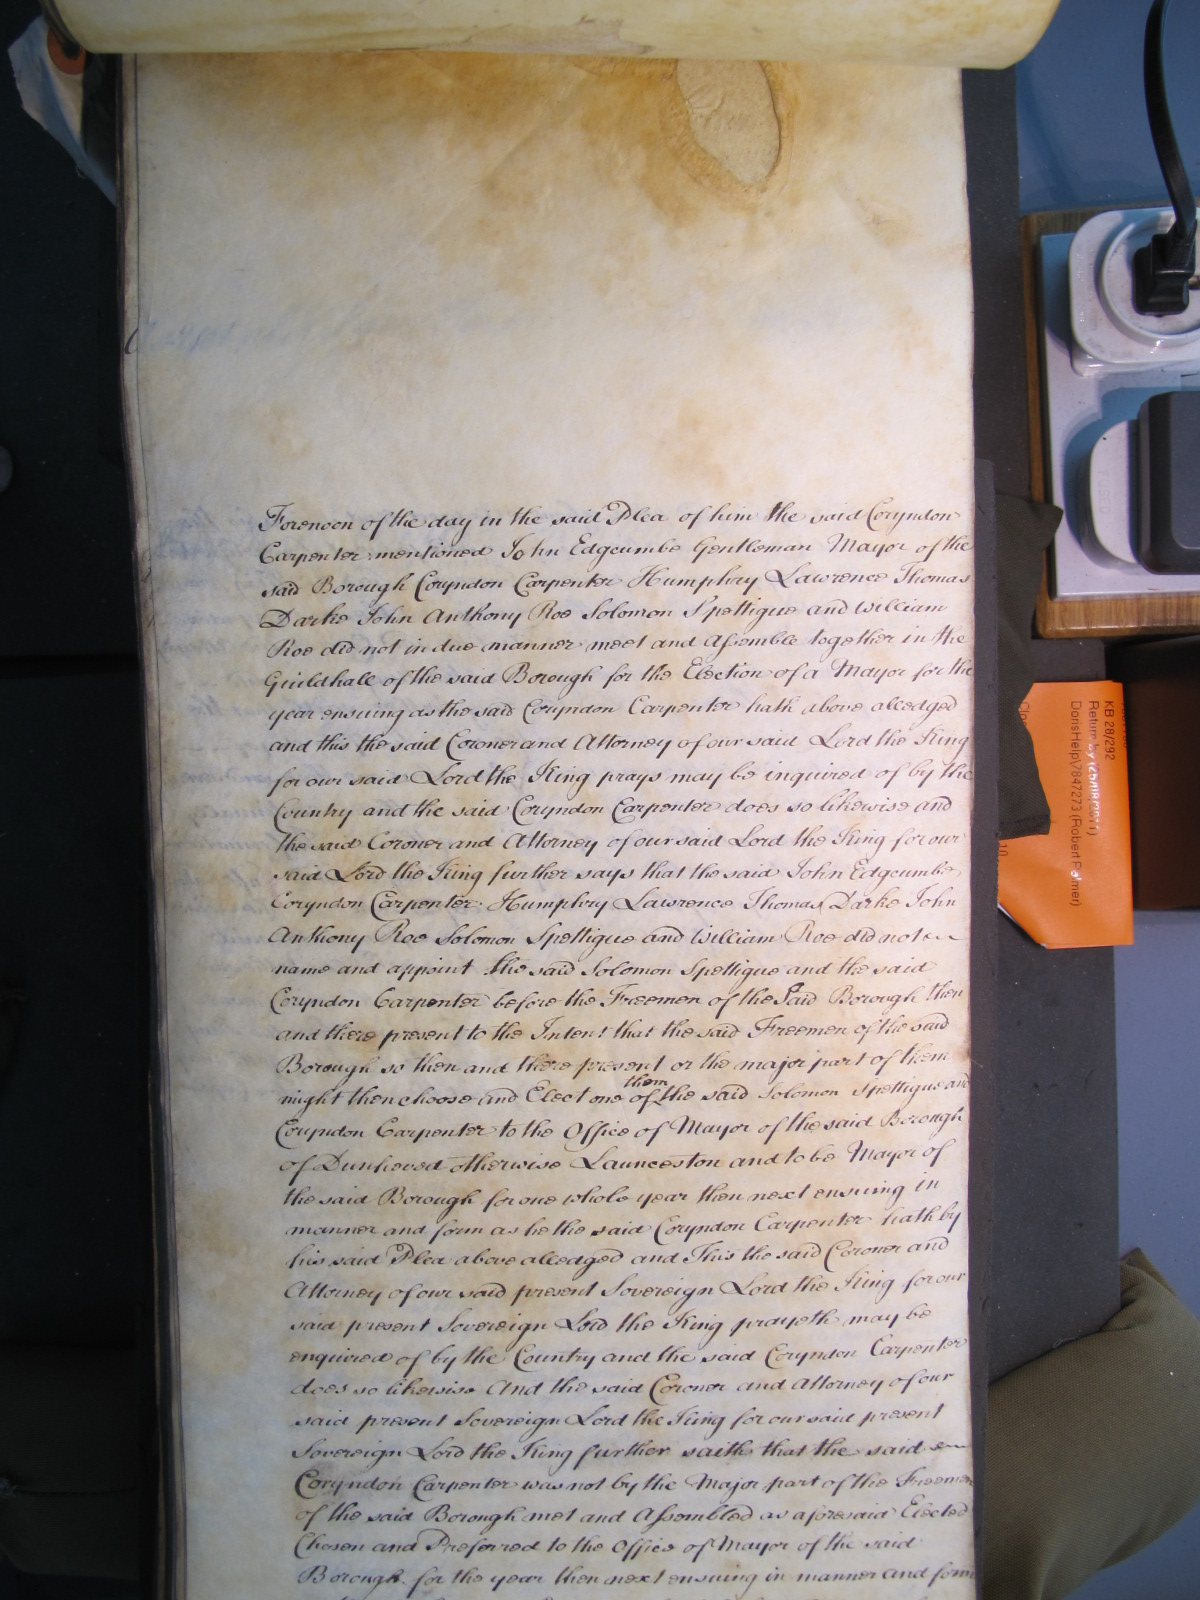 Forenoon of the day in the said Plea of him the said Coryndon
Carpenter mentioned John Edgcumbe Gentleman Mayor of the
said Borough Coryndon Carpenter Humphry Lawrence Thomas
Darke John Anthony Roe Solomon Spettigue and William
Roe did not in due manner meet and Assemble together in the
Guildhall of the said Borough for the Election of a Mayor for the
year ensuing as the said Coryndon Carpenter hath above alledged
and this the said Coroner and Attorney of our said Lord the King
for our said Lord the King prays may be inquired of by the
Country and the said Coryndon Carpenter does so likewise and
the said Coroner and Attorney of our said Lord the King for our
said Lord the King further says that the said John Edgcumbe
Coryndon Carpenter Humphry Lawrence Thomas Darke John
Anthony Roe Solomon Spettigue and William Roe did not
name and appoint the said Solomon Spettigue and the said
Coryndon Carpenter before the Freemen of the Said Borough then
and there present to the Intent that the said Freemen of the said
Borough so then and there present or the major part of them
might then choose and Elect one of them the said Solomon Spettigue and
Coryndon Carpenter to the Office of Mayor of the said Borough
of Dunheved otherwise Launceston and to be Mayor of
the said Borough for one whole year then next ensuing in
manner and form as he the said Coryndon Carpenter hath by
his said Plea above alledged and This the said Coroner and
Attorney of our said present Sovereign Lord the King for our
said present Sovereign Lord the King prayeth may be
enquired of by the Country and the said Coryndon Carpenter
does so likewise And the said Coroner and Attorney of our
said present Sovereign Lord the King for our said present
Sovereign Lord the King further saith that the said
Coryndon Carpenter was not by the Major part of the Freemen
of the said Borough met and Assembled as aforesaid Elected
Chosen and Preferred to the Office of Mayor of the said
Borough for the year then next ensuing in manner and form
KB 28/292
Return by (25/08/2011)
DorisHelp\7847273 (Robert Palmer)